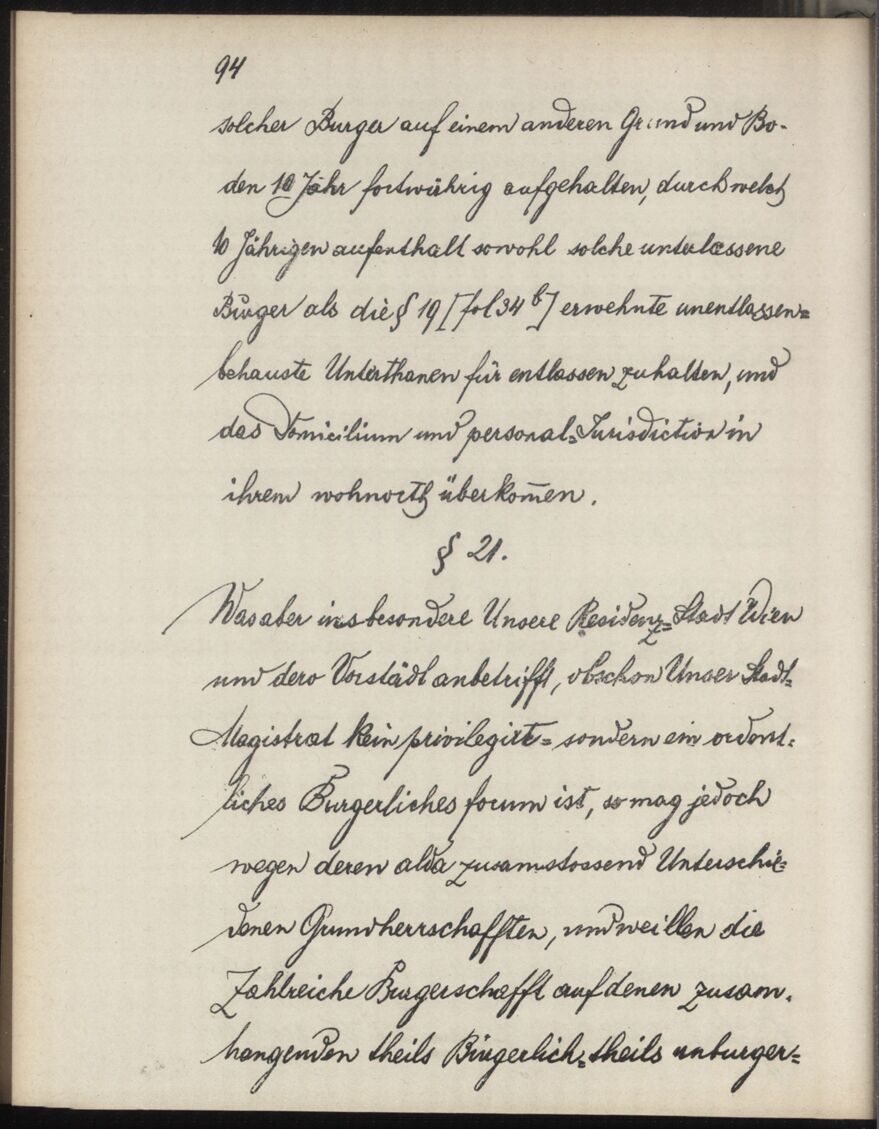 94
solcher Burger auf einem anderen Grund und Bo-
den 10 Jahr fortwährig aufgehalten, durch welch
10 Jährigen aufenthalt sowohl solche unterlassene
Bürger als die § 19 [fol 34 b] erwehnte unentlassen=
behauste Unterthanen für entlassen zuhalten, und
das Domicilium und personal=Jurisdiction in
ihrem wohnorth überkom̄en.
§ 21.
Was aber insbesondere Unsere Residenz=Stadt Wien
und dero Vorstädt anbetrifft, obschon Unser Stadt=
Magistrat kein privilegirt= sondern ein ordent=
liches Burgerliches forum ist, so mag jedoch
wegen deren alda zusamstossend Unterschie=
denen Grundherrschafften, und weillen die
Zahlreiche Burgerschafft auf denen zusam=
hangenden theils Bürgerlich= theils unburger=